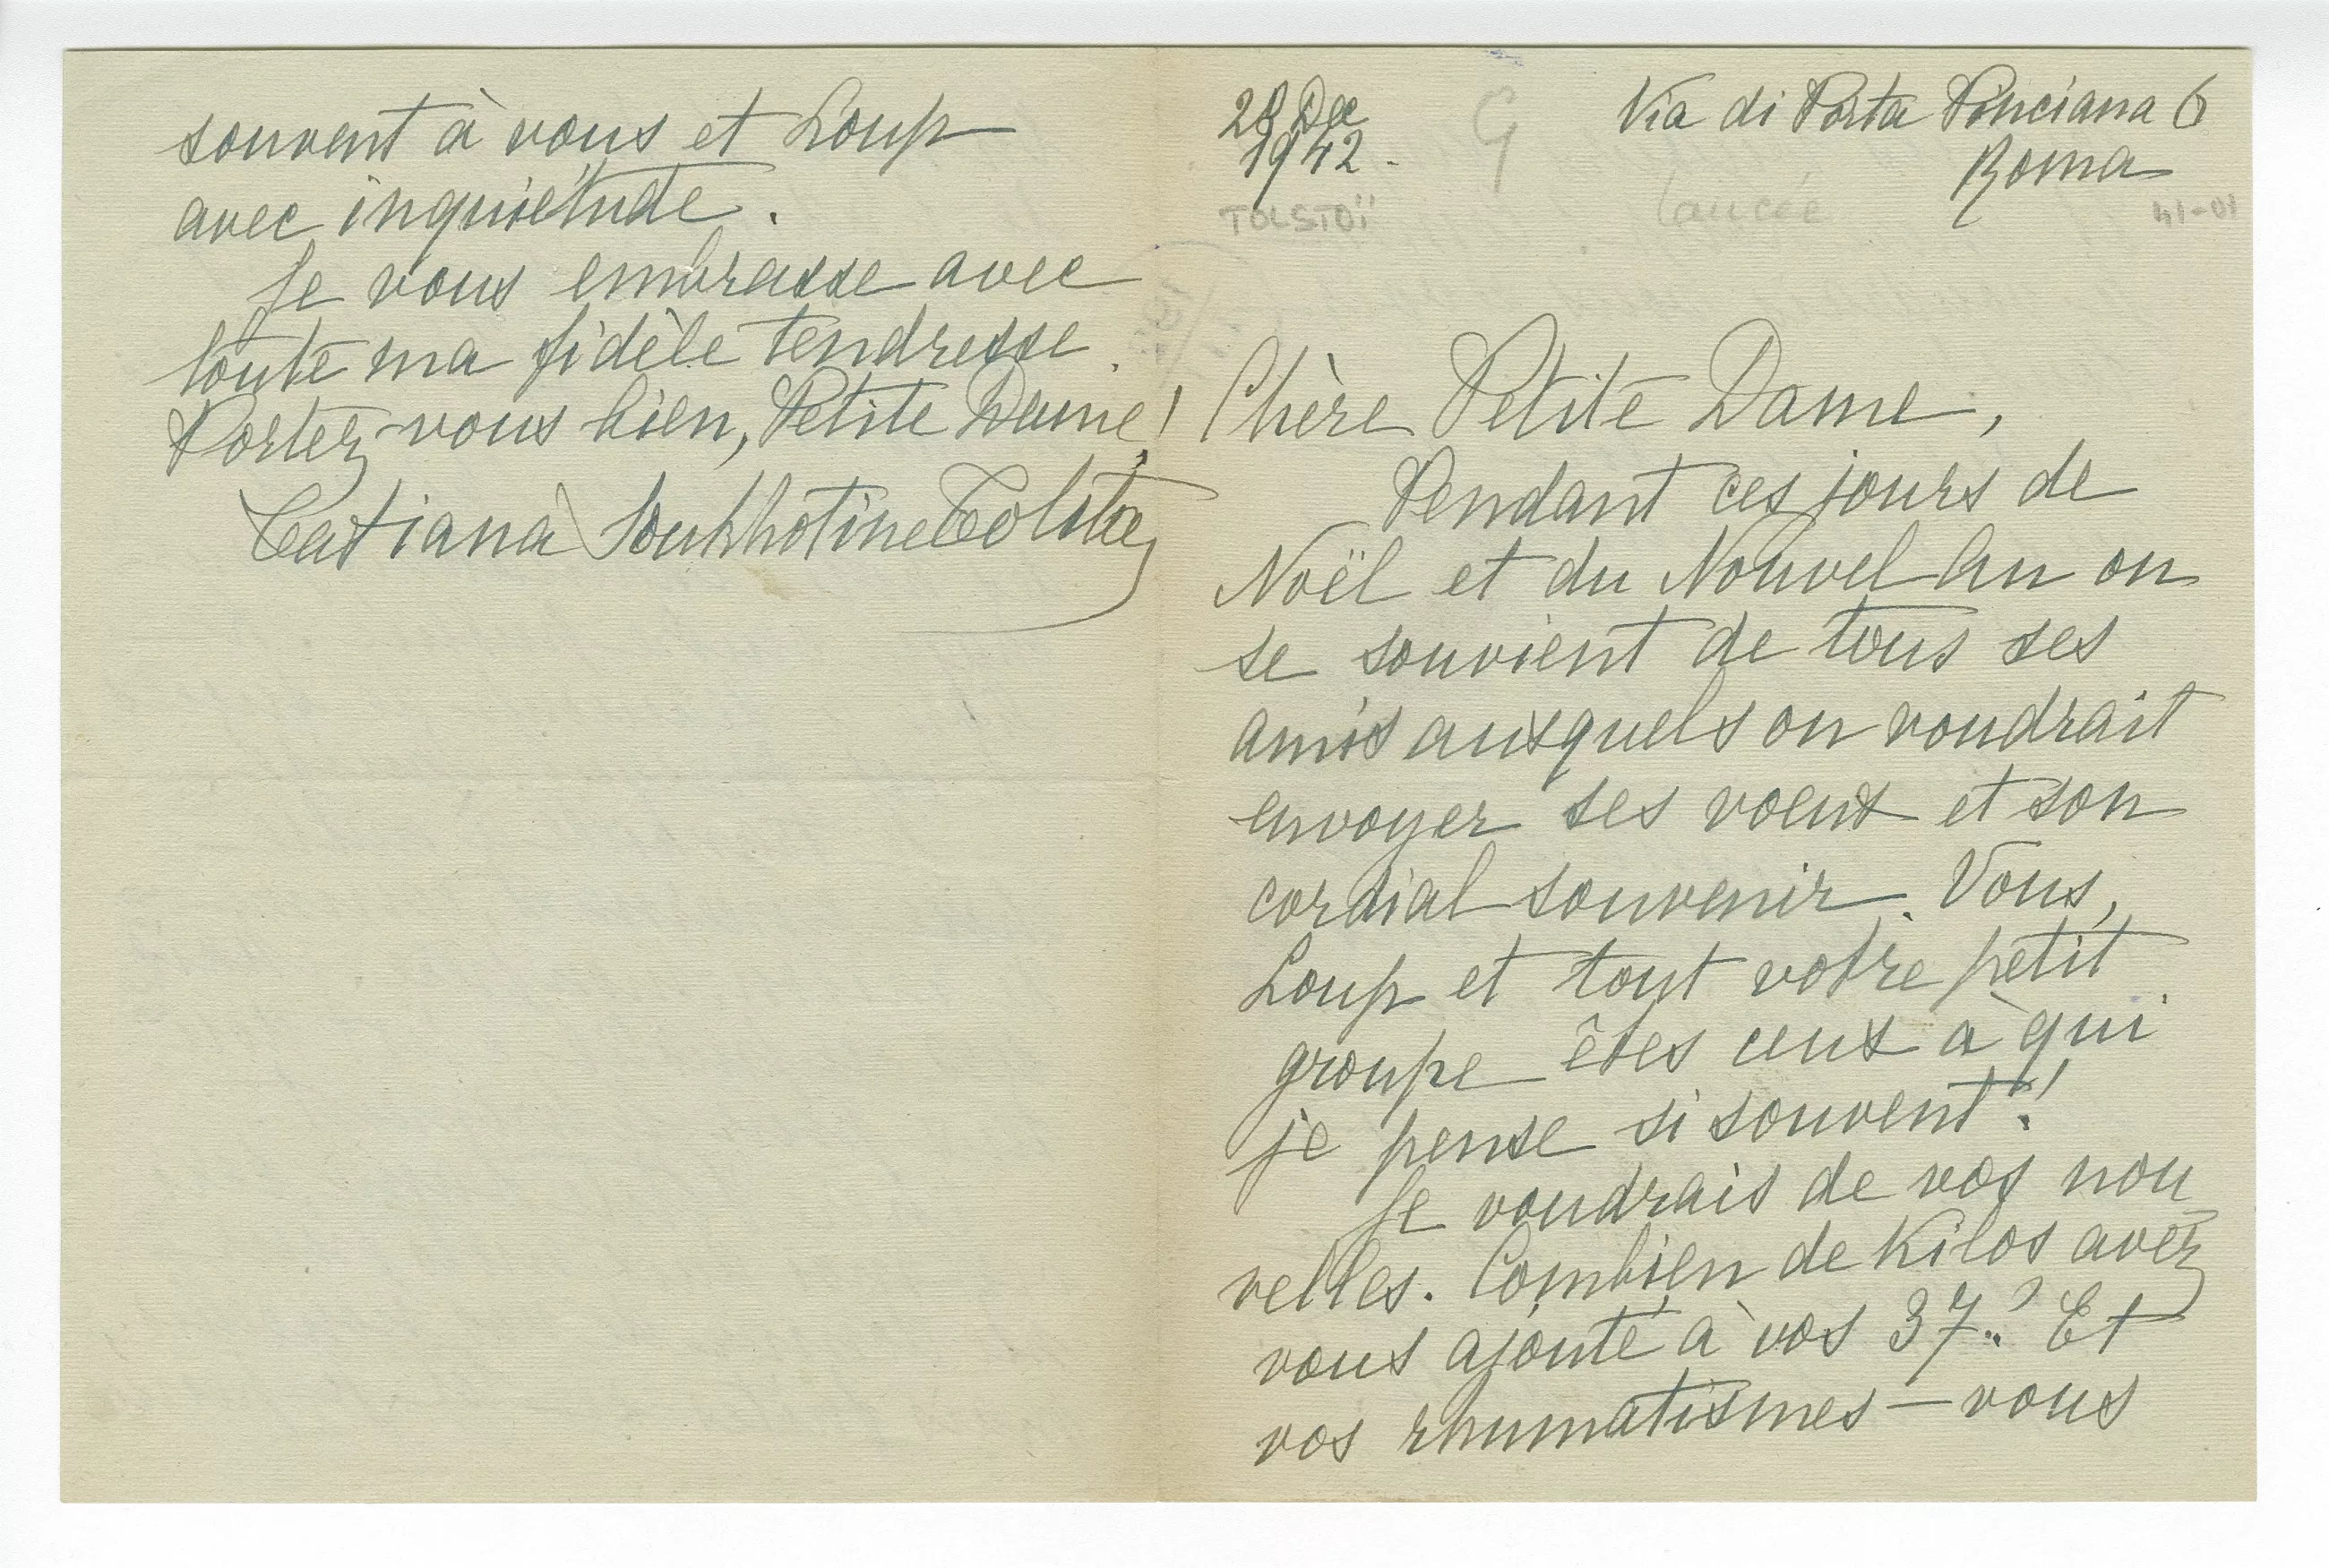 28 Dec
1942.
TOLSTOÏ
G
Via di Porta Pinciana 6
Roma
41-01
Chère Petite Dame,
Pendant ces jours de
Noël et du Nouvel An on
se souvient de tous ses
amis auxquels on voudrait
envoyer ses voeux et son
cordial souvenir. Vous,
Loup et tout votre petit
groupe êtes ceux à qui
je pense si souvent!
Je voudrais de vos nou
velles. Combien de Kilos avez
vous ajouté à vos 37? Et
vos rhumatismes — vous
souvent à vous et Loup
avec inquiétude.
Je vous embrasse avec
toute ma fidèle tendresse.
Portez-vous bien, Petite Dame!
Tatiana Soukhotine Tolstoy